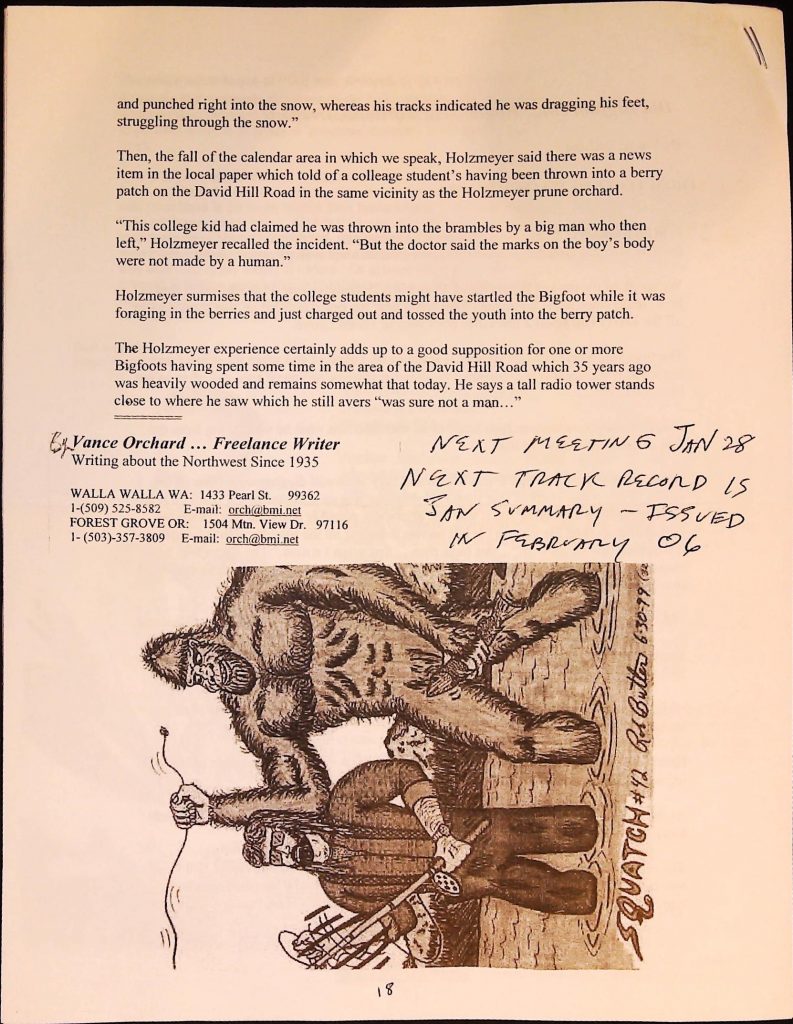 and punched right into the snow, whereas his tracks indicated he was dragging his feet,
struggling through the snow.”
Then, the fall of the calendar area in which we speak, Holzmeyer said there was a news
item in the local paper which told of a colleage student’s having been thrown into a berry
patch on the David Hill Road in the same vicinity as the Holzmeyer prune orchard.
“This college kid had claimed he was thrown into the brambles by a big man who then
left,” Holzmeyer recalled the incident. “But the doctor said the marks on the boy’s body
were not made by a human.”
Holzmeyer surmises that the college students might have startled the Bigfoot while it was
foraging in the berries and just charged out and tossed the youth into the berry patch.
The Holzmeyer experience certainly adds up to a good supposition for one or more
Bigfoots having spent some time in the area of the David Hill Road which 35 years ago
was heavily wooded and remains somewhat that today. He says a tall radio tower stands
close to where he saw which he still avers “was sure not a man…”
By Vance Orchard … Freelance Writer
Writing about the Northwest Since 1935
WALLA WALLA WA: 1433 Pearl St. 99362
1-(509) 525-8582 E-mail: orch@bmi.net
FOREST GROVE OR: 1504 Mtn. View Dr. 97116
1- (503)-357-3809 E-mail: orch@bmi.net
NEXT MEETING JAN 28
NEXT TRACK RECORD IS
JAN SUMMARY – ISSUED
IN FEBRUARY 06
SQUATCH #42 Rob Butler 6-30-79
18